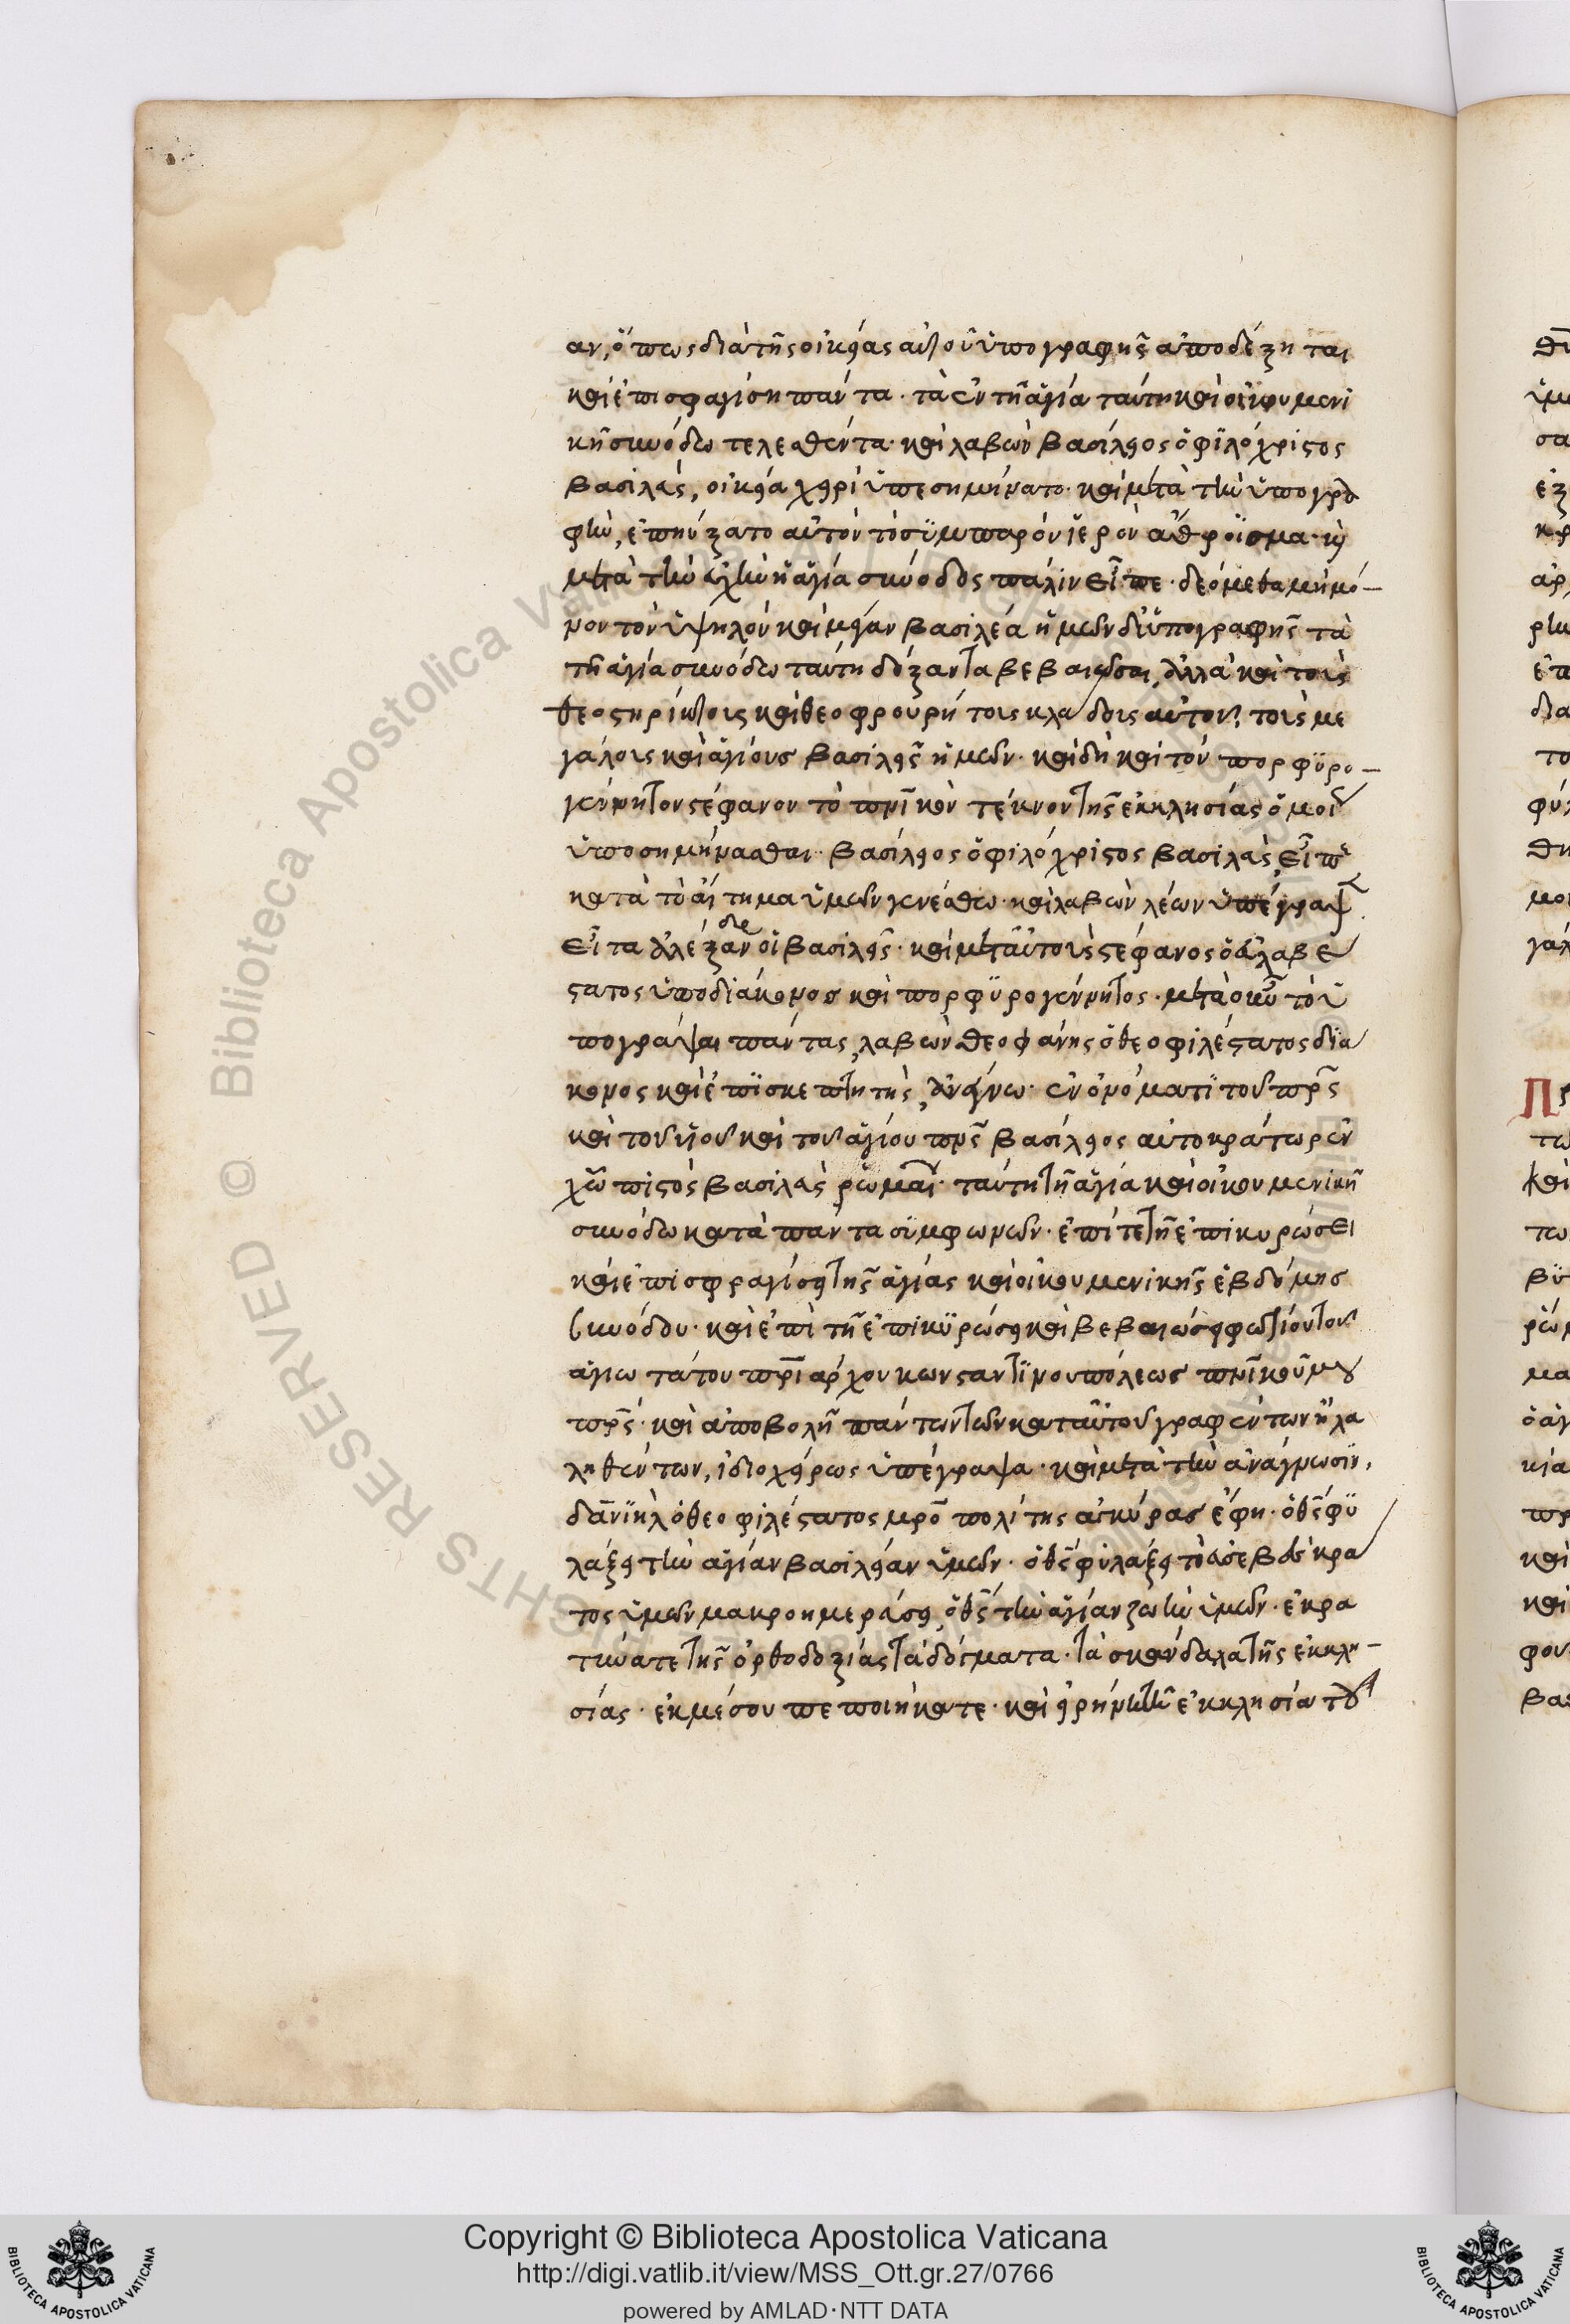 αν, ὅπως διὰ τῆς οἰκείας αὐτοῦ ὑπογραφῆς ἀποδέξηται
καὶ ἐπισφαγίση πάντα· τὰ ἐν τῆ ἁγία ταύτη καὶ οἰκουμενι
κῆ συνόδω τελεσθέντα· καὶ λαβὼν Βασίλειος ὁ φιλόχριστος
βασιλεὺς, οἰκεία χειρὶ ὑπεσημήνατο· καὶ μετὰ τὴν ὑπογρα
φὴν, ἐπηύξατο αὐτὸν τὸ συμπαρὸν ἱερὸν ἄθροισμα· καὶ
μετὰ τὴν εὐχὴν ἡ ἁγία σύνοδος πάλιν εἶπε· δεόμεθα μὴ μό
νον τὸν ὑψηλὸν καὶ μέγαν βασιλέα ἡμῶν δι' ὑπογραφῆς τὰ
τῆ ἁγία συνόδω ταύτη δόξαντα βεβαιῶσαι, ἀλλὰ καὶ τοῖς
θεοστηρίκτοις καὶ θεοφρουρήτοις κλάδοις αὐτοῦ, τοῖς με
γάλοις καὶ ἁγίους βασιλεῖς ἡμῶν· καὶ δὴ καὶ τὸν πορφυρο
γέννητον στέφανον τὸ πνικὸν τέκνον τῆς ἐκκλησίας ὁμοί
ὑποσημήνασθαι· Βασίλειος ὁ φιλόχριστος βασιλεὺς, εἶπε
κατὰ τὸ αἴτημα ὑμῶν γενέσθω· καὶ λαβὼν λέων ὑπέγραψ
εἶτα ἀλέξανδρ οἱ βασιλεῖς· καὶ μετ' αὐτοὺς στέφανος ὁ εὐλαβέ
στατος ὑποδιάκονος καὶ πορφυρογέννητος· μετὰ οὖν τὸ ὑ
πογράψαι πάντας, λαβὼν θεοφάνης ὁ θεοφιλέστατος διά
κονος καὶ ἐπισκεπτητὴς, ἀνέγνω· ἐν ὀνόματι τοῦ πρς
καὶ τοῦ υἱοῦ καὶ τοῦ ἁγίου πνς Βασίλειος αὐτοκράτωρ ἐν
χω πιστὸς βασιλεὺς ῥωμαί· ταύτη τῆ ἁγία καὶ οἰκουμενικῆ
συνόδω κατὰ πάντα συμφωνῶν· ἐπί τε τῆ ἐπικυρώσει
καὶ ἐπισφραγίσει τῆς ἁγίας καὶ οἰκουμενικῆς ἑβδόμης
συνόδου· καὶ ἐπὶ τῆ ἐπικυρώσει καὶ βεβαιώσει φωτίου τοῦ
ἁγιωτάτου πριάρχου κωνσταντινουπόλεως πνικοῦ μου
πρς· καὶ ἀποβολῆ πάντων τῶν κατ' αὐτοῦ γραφέντων ἢ λα
ληθέντων, ἰδιοχείρως ὑπέγραψα· καὶ μετὰ τὴν ἀνάγνωσιν,
δανιὴλ ὁ θεοφιλέστατος μροπολίτης ἀγκύρας ἔφη· ὁ θς φυ
λάξει τὴν ἁγίαν βασιλείαν ὑμῶν· ὁ θς φυλάξει τὸ εὐσεβὲς κρά
τος ὑμῶν μακροημερεύσει, ὁ θς τὴν ἁγίαν ζωὴν ὑμῶν· ἐκρα
τύνατε τῆς ὀρθοδοξίας τὰ δόγματα· τὰ σκάνδαλα τῆς ἐκκλη
σίας· ἐκ μέσου πεποιήκατε· καὶ εἰρήνην τῆ ἐκκλησία τοῦ